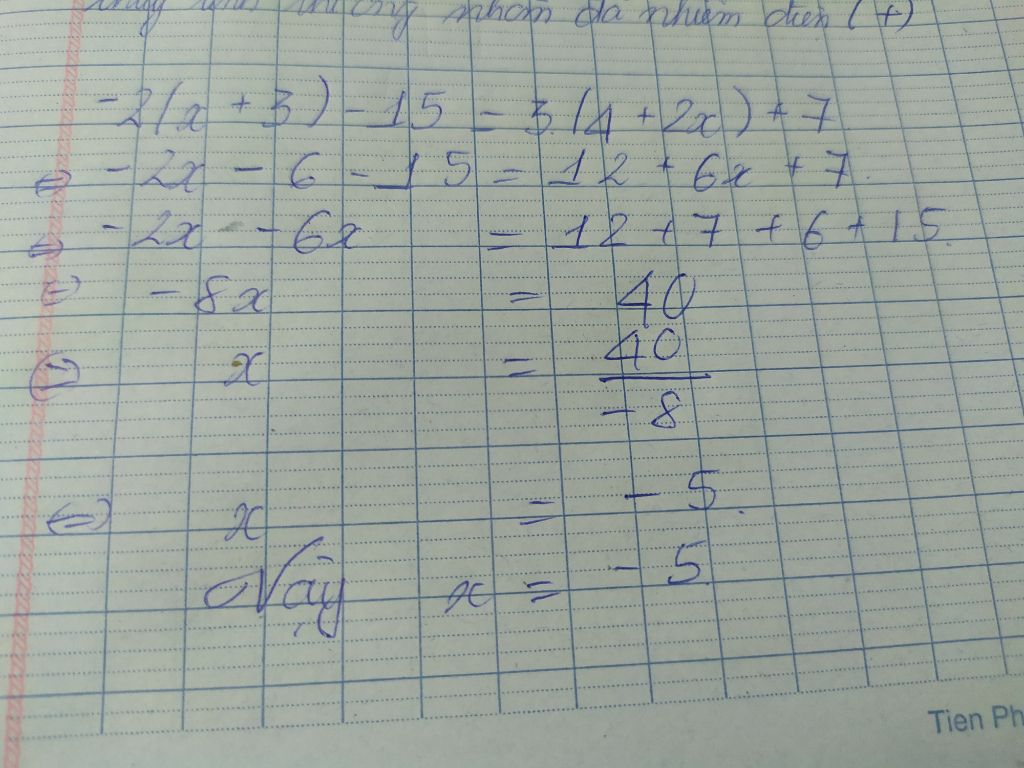 nhôm đã nhiễm điện (+)
-2(x + 3) - 15 = 3.(4 + 2x) + 7
⇔ -2x - 6 - 15 = 12 + 6x + 7.
⇔ -2x - 6x = 12 + 7 + 6 + 15.
⇔ -8x = 40
⇔ x = 40/-8
⇔ x = -5.
Vậy x = -5
Tien Ph